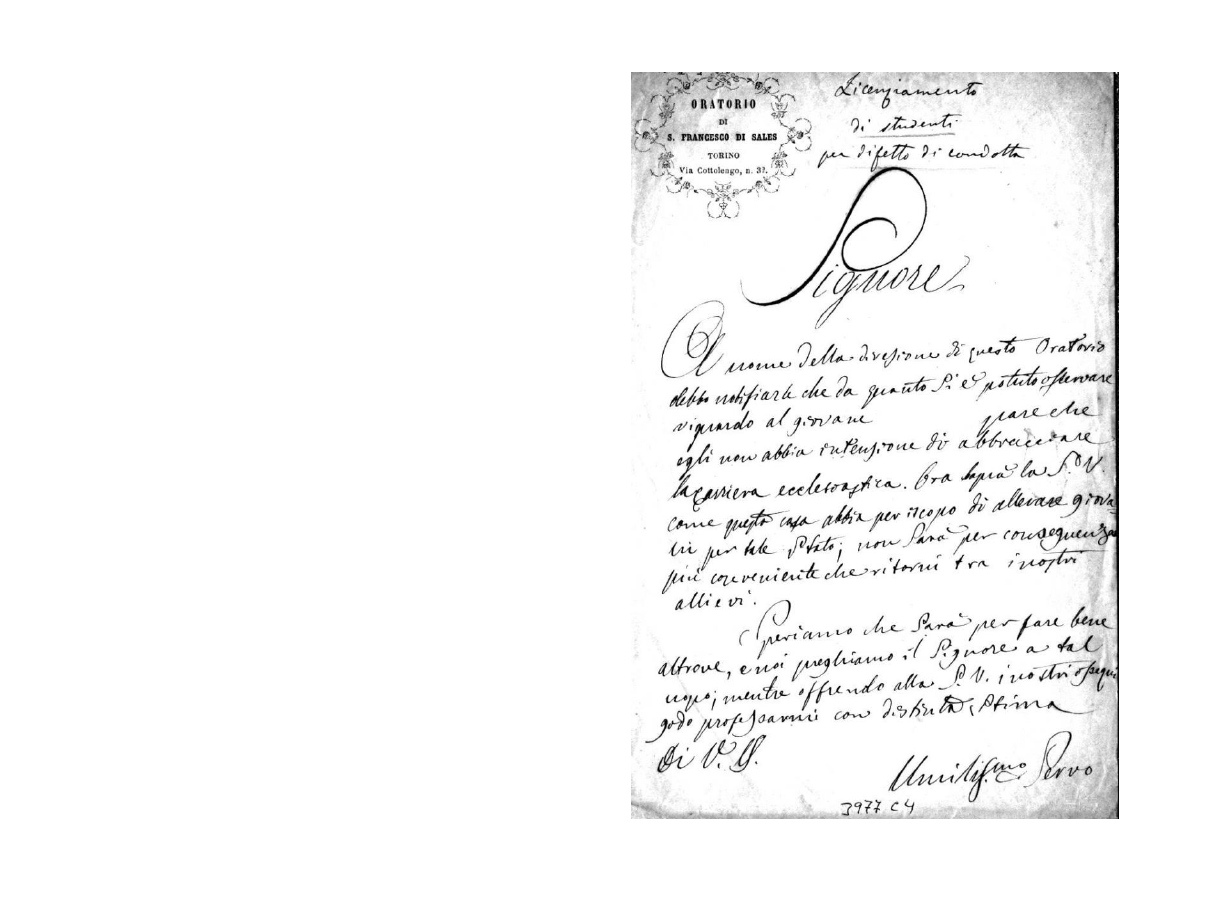 ORATORIO
DI
S. FRANCESCO DI SALES
TORINO
Via Cottolengo, n. 32.
Licenziamento
di studenti
per difetto di condotta
Signore
A nome della direzione di questo Oratorio
debbo notifiarle che da quanto si è potuto osservare
riguardo al giovane pare che
egli non abbia intenzione di abbracciare
la carriera ecclesiastica. Ora saprà la S. V.
come questa casa abbia per iscopo di allevare giova-
ni per tale stato; non sarà per conseguenza
più conveniente che ritorni tra i nostri
allievi.
Speriamo che sarà per fare bene
altrove, e noi preghiamo il Signore a tal
uopo; mentre offrendo alla S. V. i nostri ossequi
godo professarmi con distinta stima
Di V. S.
Umiliss.mo Servo
3977 C4